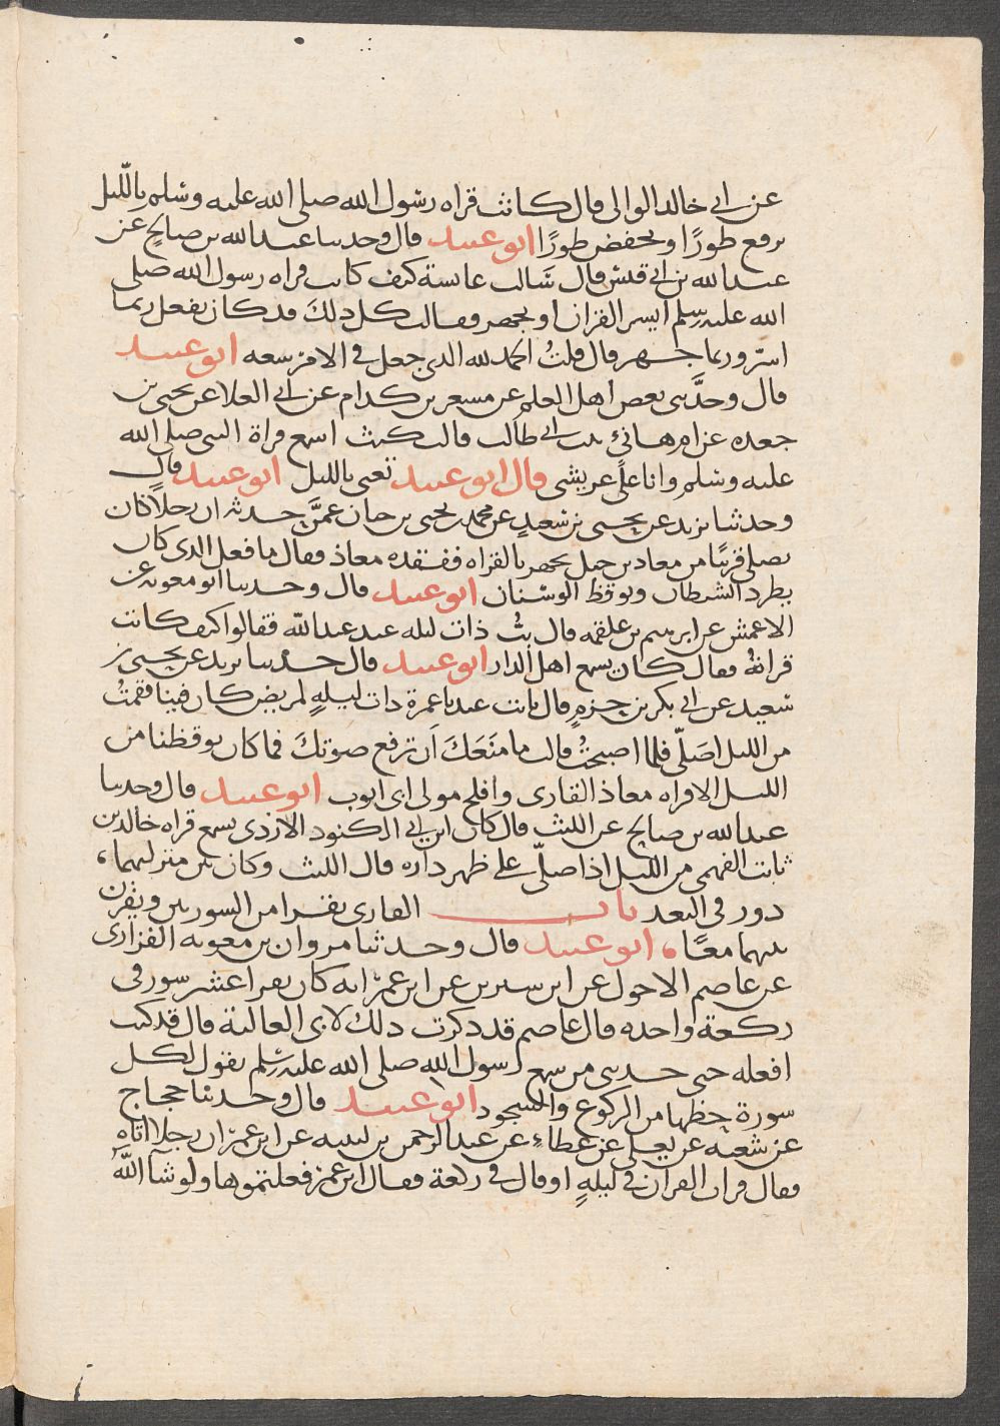 عن ابي خالد الوالبي قال كانت قراه رسول الله صلى الله عليه وسلم بالليل
يرفع طورًا ويخفض طورًا ابو عبيد قال وحدثنا عبد الله بن صالحٍ عن
عبد الله بن ابي قيس قال سَالت عائشة كيف كانت قراه رسول الله صلى
الله عليه وسلم ايسر القران او يجهر فقالت كل ذلكَ قد كان يفعل ربما
اسرّ وربما جهر قال قلتُ الحمد لله الذي جعل في الامر سعه ابو عبيد
قال وحدَّثني بعض اهل العلم عن مسعر بن كدام عن ابي العلا عن يحيى بن
جعده عن ام هانئ بنت ابي طالب قالت كنت اسمع قراة النبي صلى الله
عليه وسلم وانا على عريشي قال ابو عبيد تعني بالليل ابو عبيد قال
وحدثنا يزيد عن يحيى بن سعيدٍ عن محمد بن يحيى بن حبان عمَّن حدثه ان رجلاً كان
يصلي قريبًا من معاذ بن جبل يجهر بالقراه ففتقده معاذ فقال ما فعل الذي كان
يطرد الشيطان ويوقظ الوسنان ابو عبيد قال وحدثنا ابو معويه عن
الاعمش عن ابرهيم بن علقمه قال بتُّ ذات ليله عند عبد الله فقالوا كيف كانت
قراتهُ فقال كان يسمع اهل الدار ابو عبيد قال حدثنا يزيد عن يحيى بن
سعيد عن ابي بكر بن حزمٍ قال باتت عندنا عمرة ذات ليلهٍ لمريض كان فينا فقمتُ
من الليل اصَلّي فلما اصبحتُ قالت ما منَعَكَ اَن ترفع صوتكَ فما كان يوقظنا من
الليل الا قراه معاذ القارى وافلح مولى ابي ايوب ابو عبيد قال وحدثنا
عبد الله بن صالح عن الليث قال كان ابن ابي الكنود الازدى يسمع قراه خالد بن
ثابت الفهمي من الليل اذا صلّى على ظهر داره قال الليث وكان بين منزليهما،
دور في البعد باب القارى يقرا من السورتين ويقرن
بينهما معًا، ابو عبيد قال وحدثنا مروان بن معويه الفزارى
عن عاصم الاحول عن ابن سيرين عن ابن عمر انه كان يقرا عشر سور في
ركعة واحده قال عاصم قد ذكرت ذلك لابي العالية قال قد كنت
افعله حتى حدثني من سمع رسول الله صلى الله عليه وسلم يقول لكل
سورة حظها من الركوع والسجود ابو عبيد قال وحدثنا حجاج
عن شعبه عن يعلى عن عطاءٍ عن عبد الرحمن بن لبيبه عن ابن عمر ان رجلا اتاه
فقال قرات القران في ليلهٍ او قال في ركعة فقال ابن عمر فعلتموها ولو شآ اللهُ